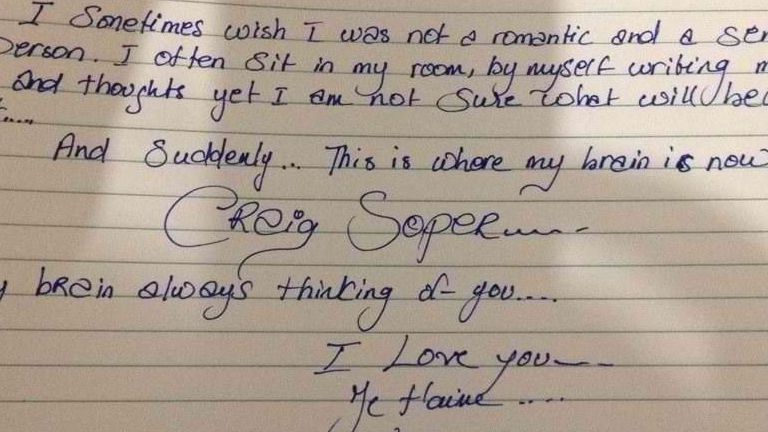 I Sometimes wish I was not a romantic and a sen
person. I often sit in my room, by myself writing m
and thoughts yet I am not sure what will bec
t.....
And Suddenly... This is where my brain is now
Craig Soper......
y brain always thinking of you....
I Love you....
Je t'aime ....